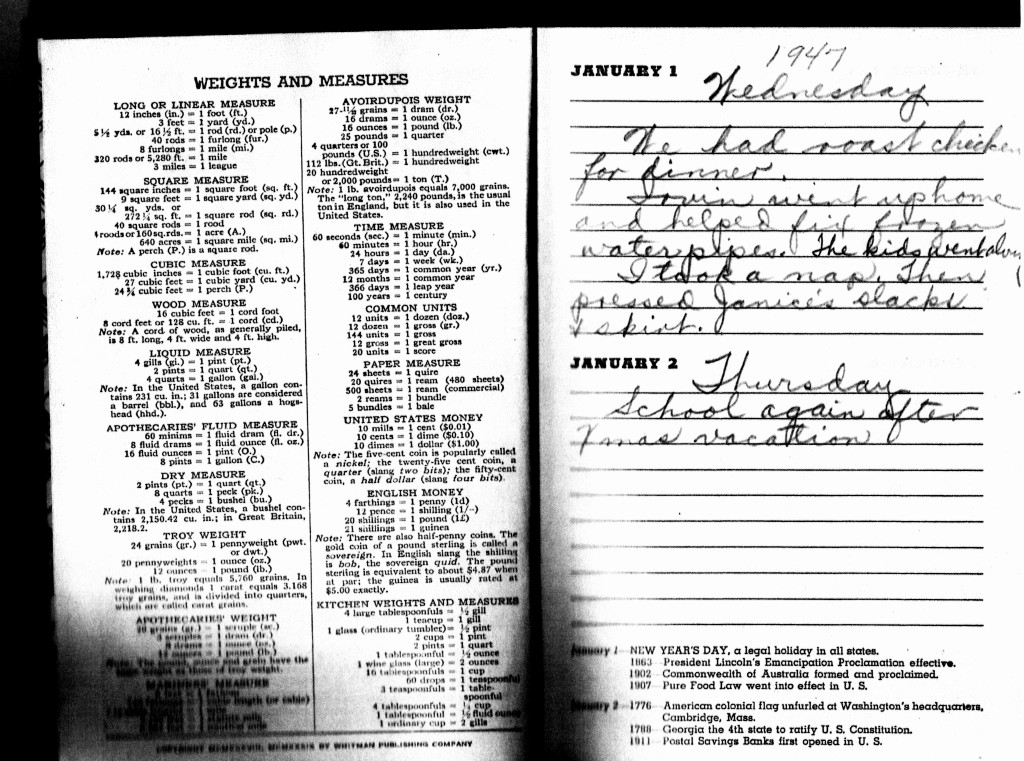 WEIGHTS AND MEASURES
LONG OR LINEAR MEASURE
12 inches (in.) = 1 foot (ft.)
3 feet = 1 yard (yd.)
5 ½ yds. or 16 ½ ft. = 1 rod (rd.) or pole (p.)
40 rods = 1 furlong (fur.)
8 furlongs = 1 mile (mi.)
320 rods or 5,280 ft. = 1 mile
3 miles = 1 league
SQUARE MEASURE
144 square inches = 1 square foot (sq. ft.)
9 square feet = 1 square yard (sq. yd.)
30 ¼ sq. yds. or
272 ¼ sq. ft. = 1 square rod (sq. rd.)
40 square rods = 1 rood
4 roods or 160 sq. rds. = 1 acre (A.)
640 acres = 1 square mile (sq. mi.)
Note: A perch (P.) is a square rod.
CUBIC MEASURE
1,728 cubic inches = 1 cubic foot (cu. ft.)
27 cubic feet = 1 cubic yard (cu. yd.)
24 ¾ cubic feet = 1 perch (P.)
WOOD MEASURE
16 cubic feet = 1 cord foot
8 cord feet or 128 cu. ft. = 1 cord (cd.)
Note: A cord of wood, as generally piled,
is 8 ft. long, 4 ft. wide and 4 ft. high.
LIQUID MEASURE
4 gills (gi.) = 1 pint (pt.)
2 pints = 1 quart (qt.)
4 quarts = 1 gallon (gal.)
Note: In the United States, a gallon con-
tains 231 cu. in.; 31 gallons are considered
a barrel (bbl.), and 63 gallons a hogs-
head (hhd.).
APOTHECARIES' FLUID MEASURE
60 minims = 1 fluid dram (fl. dr.)
8 fluid drams = 1 fluid ounce (fl. oz.)
16 fluid ounces = 1 pint (O.)
8 pints = 1 gallon (C.)
DRY MEASURE
2 pints (pt.) = 1 quart (qt.)
8 quarts = 1 peck (pk.)
4 pecks = 1 bushel (bu.)
Note: In the United States, a bushel con-
tains 2,150.42 cu. in.; in Great Britain,
2,218.2.
TROY WEIGHT
24 grains (gr.) = 1 pennyweight (pwt.
or dwt.)
20 pennyweights = 1 ounce (oz.)
12 ounces = 1 pound (lb.)
Note: 1 lb. troy equals 5,760 grains. In
weighing diamonds 1 carat equals 3.168
troy grains, and is divided into quarters,
which are called carat grains.
APOTHECARIES' WEIGHT
20 grains (gr.) = 1 scruple (sc.)
3 scruples = 1 dram (dr.)
8 drams = 1 ounce (oz.)
12 ounces = 1 pound (lb.)
Note: The pound, ounce and grain have the
same weight as those of troy weight.
MARINERS' MEASURE
AVOIRDUPOIS WEIGHT
27-11/32 grains = 1 dram (dr.)
16 drams = 1 ounce (oz.)
16 ounces = 1 pound (lb.)
25 pounds = 1 quarter
4 quarters or 100
pounds (U.S.) = 1 hundredweight (cwt.)
112 lbs. (Gt. Brit.) = 1 hundredweight
20 hundredweight
or 2,000 pounds = 1 ton (T.)
Note: 1 lb. avoirdupois equals 7,000 grains.
The "long ton," 2,240 pounds, is the usual
ton in England, but it is also used in the
United States.
TIME MEASURE
60 seconds (sec.) = 1 minute (min.)
60 minutes = 1 hour (hr.)
24 hours = 1 day (da.)
7 days = 1 week (wk.)
365 days = 1 common year (yr.)
12 months = 1 common year
366 days = 1 leap year
100 years = 1 century
COMMON UNITS
12 units = 1 dozen (doz.)
12 dozen = 1 gross (gr.)
144 units = 1 gross
12 gross = 1 great gross
20 units = 1 score
PAPER MEASURE
24 sheets = 1 quire
20 quires = 1 ream (480 sheets)
500 sheets = 1 ream (commercial)
2 reams = 1 bundle
5 bundles = 1 bale
UNITED STATES MONEY
10 mills = 1 cent ($0.01)
10 cents = 1 dime ($0.10)
10 dimes = 1 dollar ($1.00)
Note: The five-cent coin is popularly called
a nickel; the twenty-five cent coin, a
quarter (slang two bits); the fifty-cent
coin, a half dollar (slang four bits).
ENGLISH MONEY
4 farthings = 1 penny (1d)
12 pence = 1 shilling (1/-)
20 shillings = 1 pound (1£)
21 shillings = 1 guinea
Note: There are also half-penny coins. The
gold coin of a pound sterling is called a
sovereign. In English slang the shilling
is bob, the sovereign quid. The pound
sterling is equivalent to about $4.87 when
at par; the guinea is usually rated at
$5.00 exactly.
KITCHEN WEIGHTS AND MEASURES
4 large tablespoonfuls = ½ gill
1 teacup = 1 gill
1 glass (ordinary tumbler) = ½ pint
2 cups = 1 pint
2 pints = 1 quart
1 tablespoonful = ½ ounce
1 wine glass (large) = 2 ounces
16 tablespoonfuls = 1 cup
60 drops = 1 teaspoonful
3 teaspoonfuls = 1 table-
spoonful
4 tablespoonfuls = ¼ cup
1 tablespoonful = ½ fluid ounce
1 ordinary cup = 2 gills
BY WHITMAN PUBLISHING COMPANY
1947
JANUARY 1
Wednesday
We had roast chicken
for dinner.
Irvin went up home
and helped fix frozen
water pipes. The kids went along
I took a nap. Then
pressed Janice's slacks
& skirt.
JANUARY 2
Thursday
School again after
Xmas vacation
January 1 NEW YEAR'S DAY, a legal holiday in all states.
1863 President Lincoln's Emancipation Proclamation effective.
1902 Commonwealth of Australia formed and proclaimed.
1907 Pure Food Law went into effect in U. S.
January 2 1776 American colonial flag unfurled at Washington's headquarters,
Cambridge, Mass.
1788 Georgia the 4th state to ratify U. S. Constitution.
1911 Postal Savings Banks first opened in U. S.